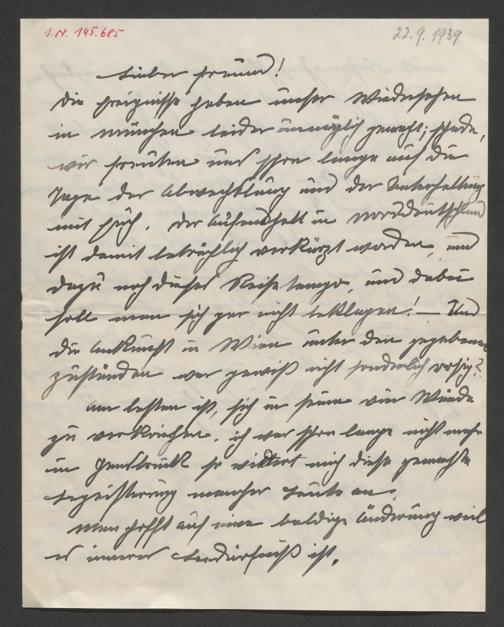 I.N. 195.685
22.9.1939
Lieber Freund!
Die Ereignisse haben unser Wiedersehen
in München leider unmöglich gemacht; schade,
wir freuten uns schon lange auf die
Tage der Abwechslung und der Unterhaltung
mit Euch. Der Aufenthalt in Norddeutschland
ist damit beträchlich verkürzt worden, und
dazu noch dieses Reisetempo, und dabei
soll man sich gar nicht beklagen! – Und
die Ankunft in Wien unter den gegebenen
Zuständen war gewiß nicht sonderlich rosig?
Am besten ist, sich in seine vier Wände
zu verkriechen. Ich war schon lange nicht mehr
in so widert mich diese gemachte
Begeisterung mancher Leute an.
Man hofft auf eine baldige Änderung weil
es inneres Bedürfniß ist.